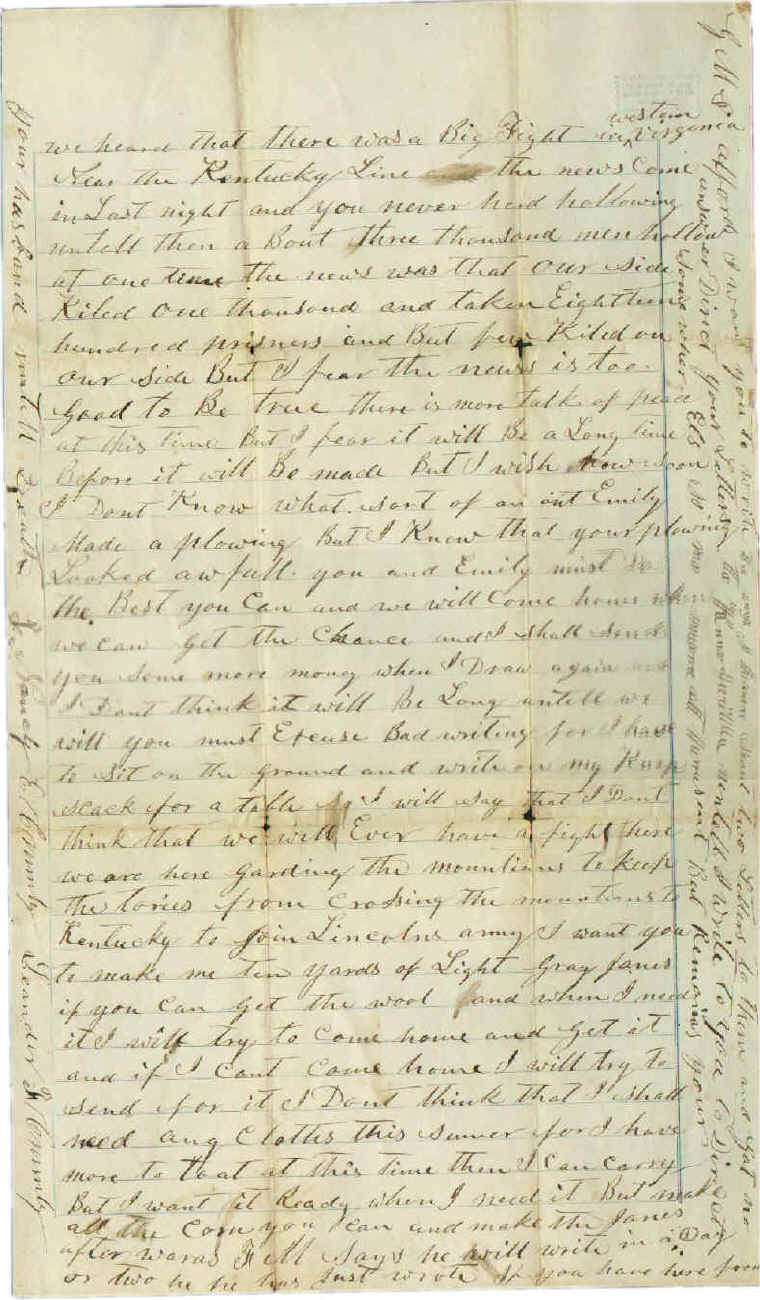 we heard that there was a Big Fight in western Virgenia
Near the Kentucky Line the news Come
in Last night and you never herd hollowing
untell then a Bout three thousand men hollow
at one time the news was that our side
Kiled one thousand and taken Eighteen
hundred prisners and But few Kiled on
our side But I fear the news is too
good to Be true there is more talk of peac
at this time But I fear it will Be a Long time
Before it will Be made But I wish how soon
I Dont Know what sort of an out Emily
Made a plowing But I Know that your plowing
Looked awfull you and Emily must do
the Best you Can and we will Come home when
we can get the Chance and I shall send
you some more money when I Draw again and
I Dont think it will Be Long untell we
will you must Excuse Bad writing for I have
to sit on the ground and write on my Knap
sack for a table so I will say that I Dont
think that we will Ever have a fight here
we are here garding the mountians to keep
the tories from Crossing the mountians to
Kentucky to join Lincolns army I want you
to make me ten yards of Light gray Janes
if you can get the wool and when I need
it I will try to Come home and get it
and if I Cant Come home I will try to
send for it I Dont think that I shall
need any Cloths this sumer for I have
more to toat at this time then I can carry
But I want it Ready when I need it But make
all the Corn you can and make the Janes
after waras Fell says he will write in a Day
or two he has Just wrote if you have here from
G M afford I want you to write to me I have sent two Letters to them and got no
answer Direct your Letters to Knoxville untell I write to you to Direct
some wher Els so no more at this time But Remains your
your husband untell Death Leander
to Nancy E